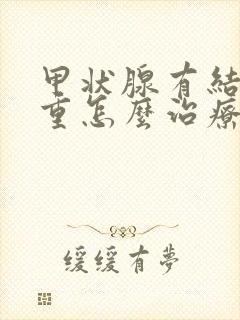 甲状腺有結
重怎麼治療
缓缓有夢